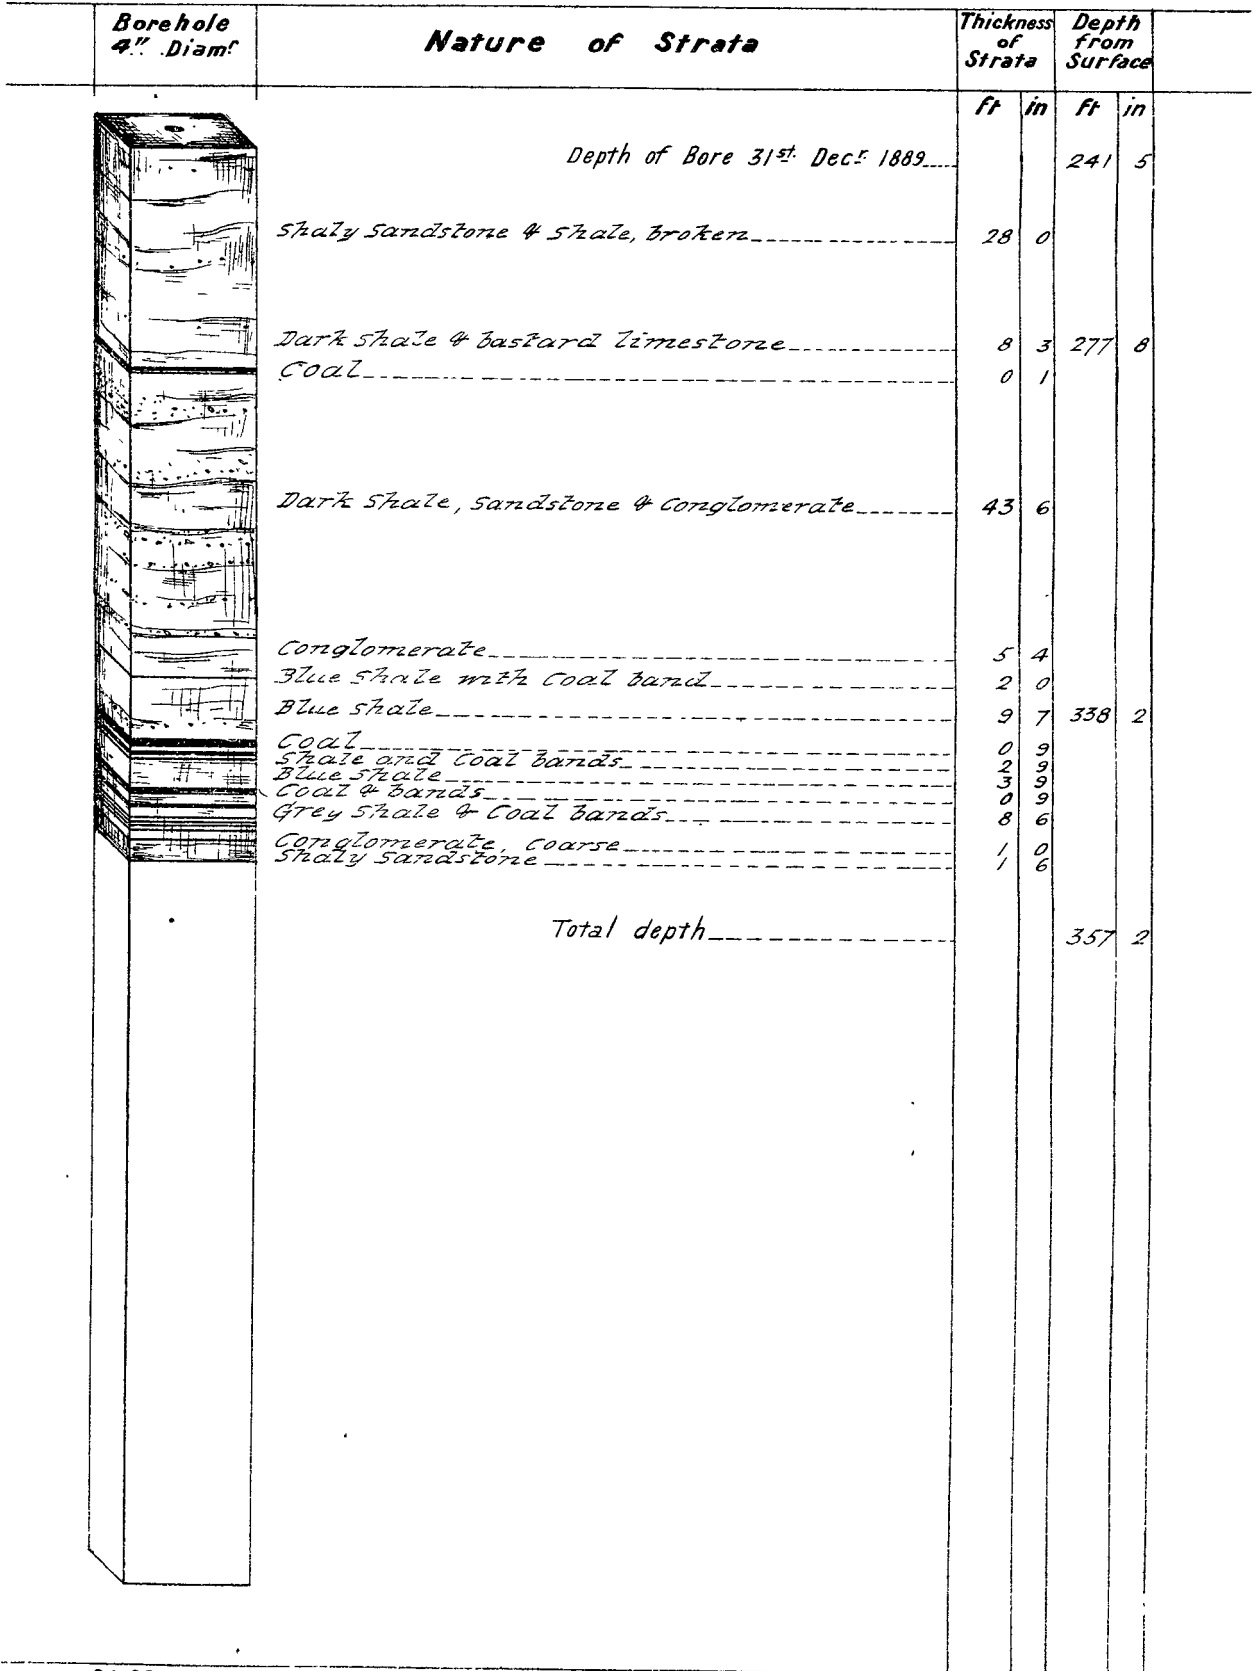 Borehole 4" Diamr Nature of Strata Thickness of Strata Depth from Surface
ft in ft in
Depth of Bore 31st Decr 1889 241 5
Shaly Sandstone & Shale, broken 28 0
Dark Shale & bastard limestone 8 3 277 8
Coal 0 1
Dark Shale, Sandstone & Conglomerate 43 6
Conglomerate 5 4
Blue Shale with Coal band 2 0
Blue Shale 9 7 338 2
Coal 0 9
Shale and Coal bands 2 9
Blue Shale 3 9
Coal & bands 0 9
Grey Shale & Coal bands 8 6
Conglomerate, coarse 1 0
Shaly Sandstone 1 6
Total depth 357 2